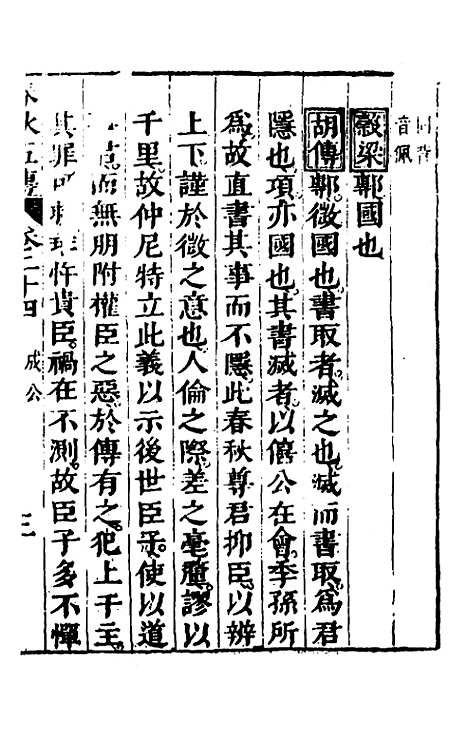 音佩
穀梁鄟國也
胡傳鄟微國也書取者滅之也滅而書取為君
隱也項亦國也其書滅者以僖公在會季孫所
為故直書其事而不隱此春秋尊君抑臣以辨
上下謹於微之意也人倫之際差之毫釐謬以
千里故仲尼特立此義以示後世臣子使以道
而無朋附權臣之惡於傳有之犯上干主
其罪可 忤貴臣禍在不測故臣子多不憚
秋五傳 卷二十四 成公 三